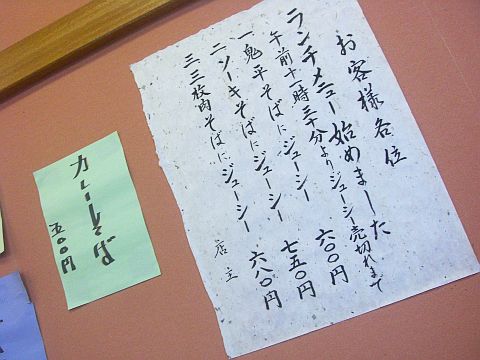 お客様各位
ランチメニュー始めました
午前十一時三十分よりジューシー売切れまで
一 鬼平そばにジューシー 六〇〇円
二 ソーキそばにジューシー 七五〇円
三 三枚肉そばにジューシー 六八〇円
店主
カレーそば
五〇〇円